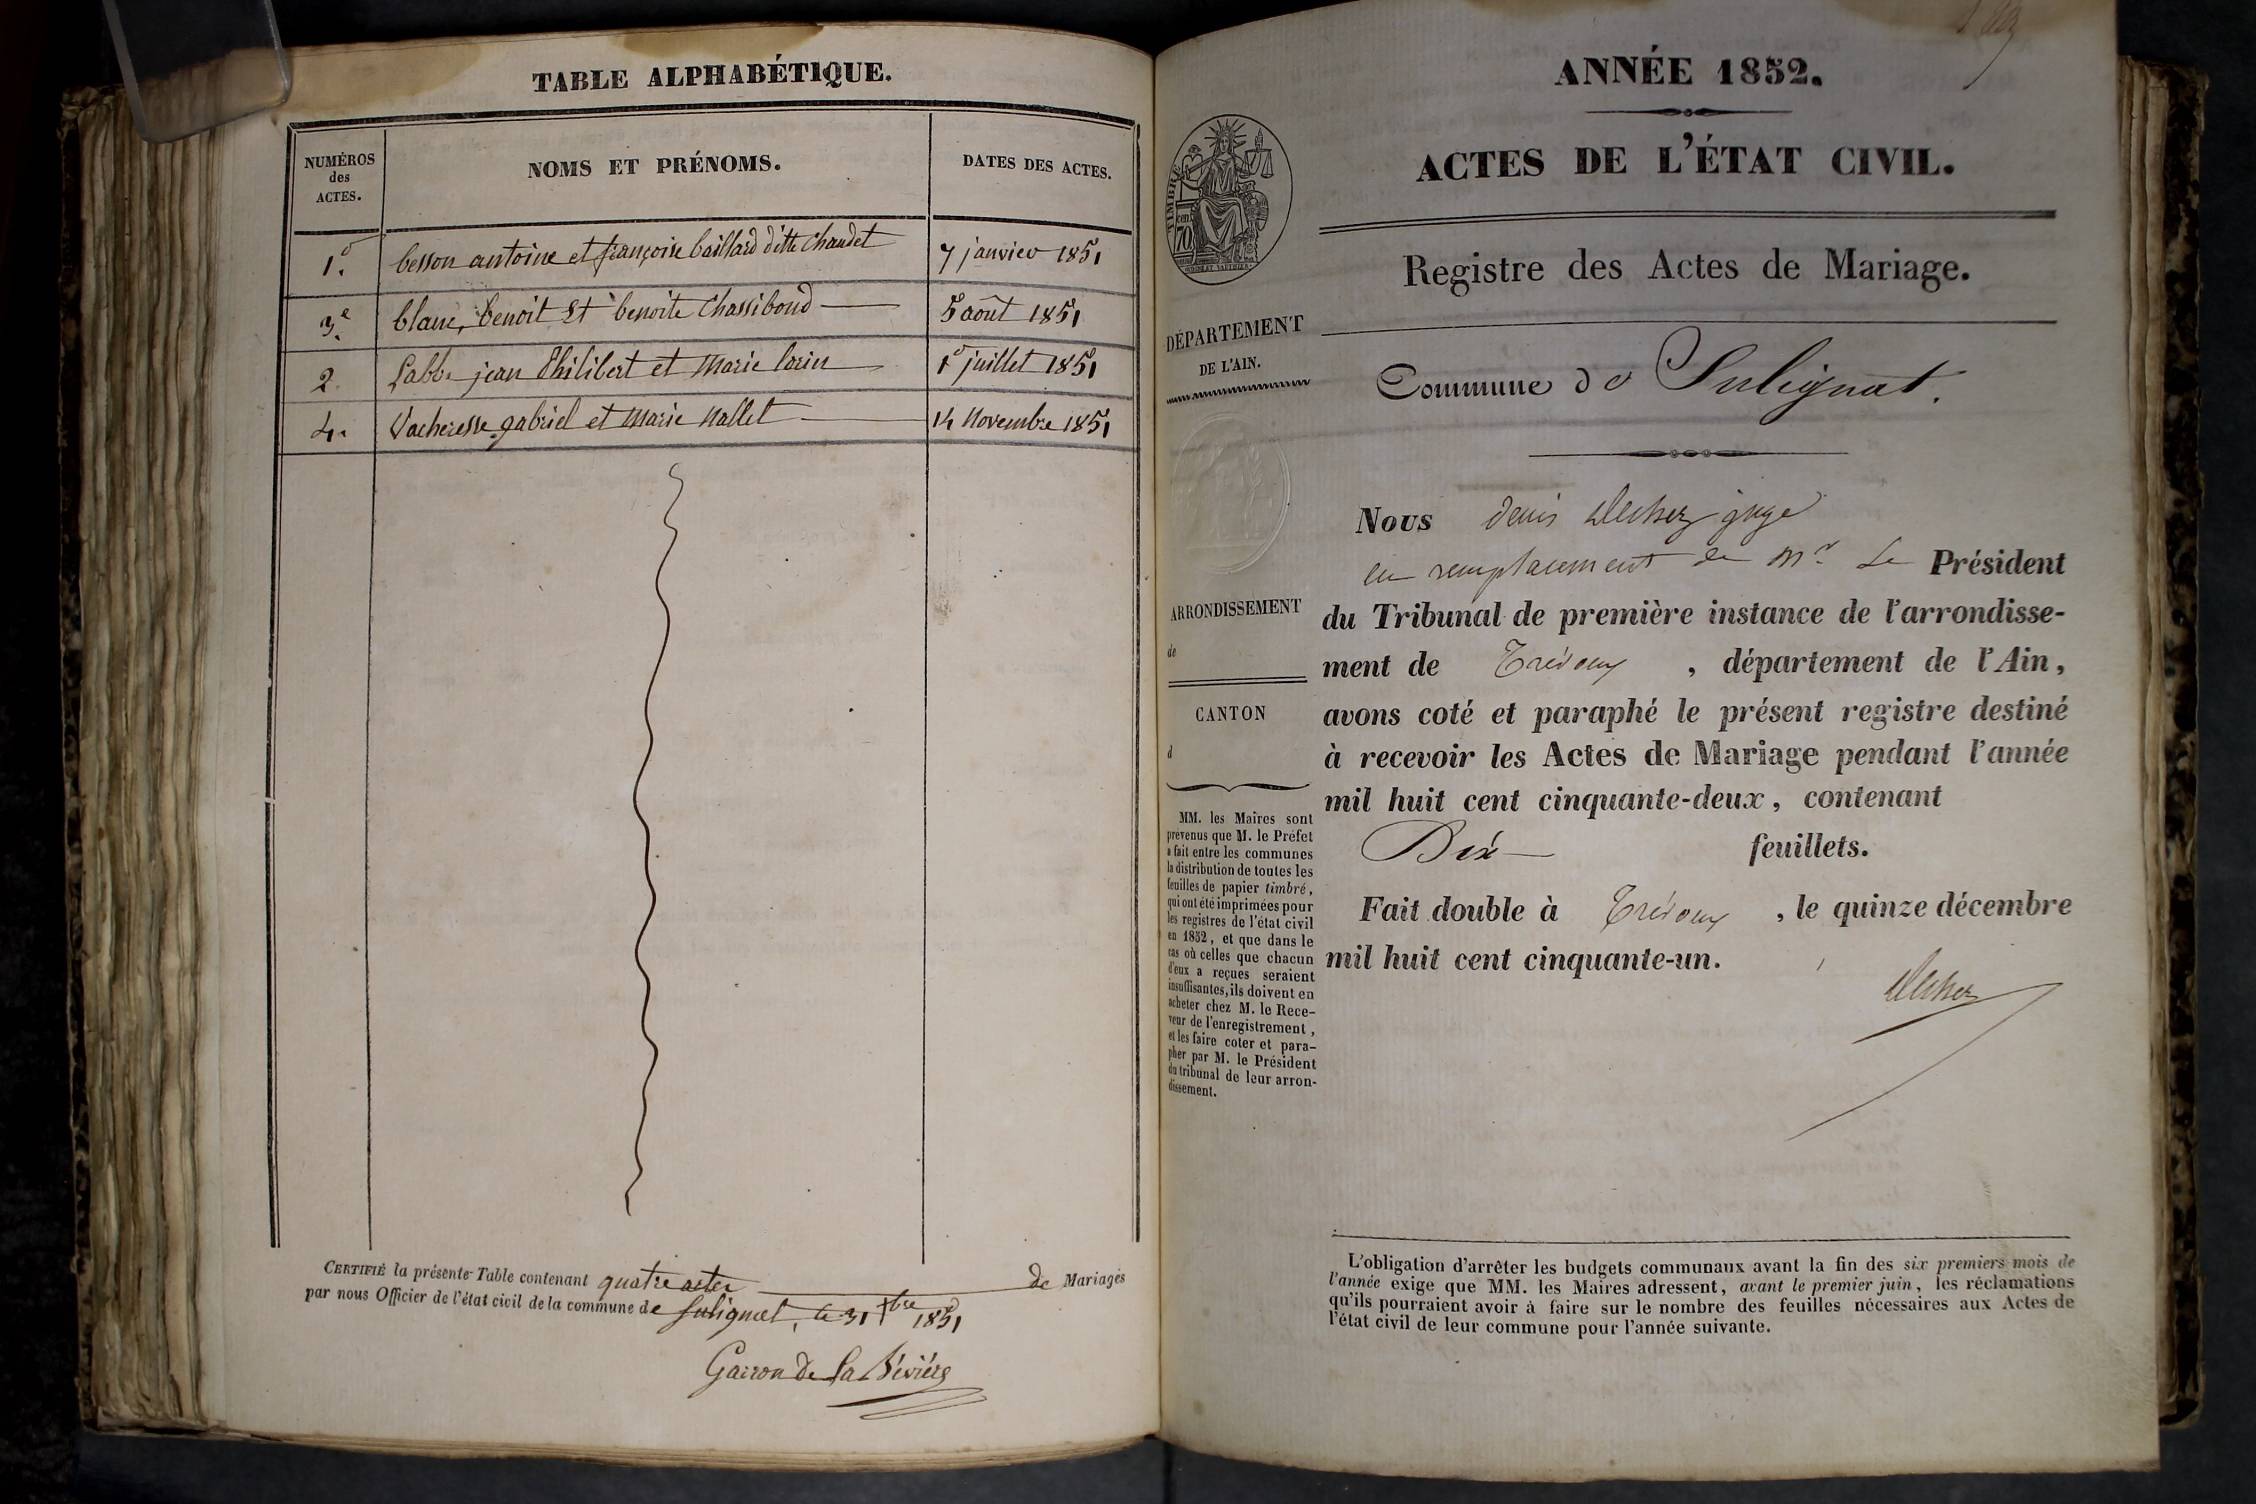 TABLE ALPHABÉTIQUE.
NUMÉROS
des
ACTES.
NOMS ET PRÉNOMS.
DATES DES ACTES.
1º. besson antoine et françoise baillard ditte Chaudet 7 janvier 1851
3e. blanc, benoit Et benoite Chassiboud 5 août 1851
2. Labbe jean Philibert et Marie lorin 1º juillet 1851
4. Vacheresse gabriel et Marie Nallet 14 Novembre 1851
CERTIFIÉ la présente Table contenant quatre actes de Mariages
par nous Officier de l'état civil de la commune de Sulignat, le 31 Xbre 1851
Garron de la Bévière
ANNÉE 1852.
ACTES DE L'ÉTAT CIVIL.
Registre des Actes de Mariage.
Commune de Sulignat.
TIMBRE
cen.
70
DÉPARTEMENT
DE L'AIN.
ARRONDISSEMENT
de
CANTON
d
MM. les Maires sont
prévenus que M. le Préfet
a fait entre les communes
la distribution de toutes les
feuilles de papier timbré,
qui ont été imprimées pour
les registres de l'état civil
en 1852, et que dans le
cas où celles que chacun
d'eux a reçues seraient
insuffisantes, ils doivent en
acheter chez M. le Rece-
veur de l'enregistrement,
et les faire coter et para-
pher par M. le Président
du tribunal de leur arron-
dissement.
Nous denis juge
en remplacement de Mr Le Président
du Tribunal de première instance de l'arrondisse-
ment de Trévoux, département de l'Ain,
avons coté et paraphé le présent registre destiné
à recevoir les Actes de Mariage pendant l'année
mil huit cent cinquante-deux, contenant
Dix feuillets.
Fait double à Trévoux, le quinze décembre
mil huit cent cinquante-un.
L'obligation d'arrêter les budgets communaux avant la fin des six premiers mois de
l'année exige que MM. les Maires adressent, avant le premier juin, les réclamations
qu'ils pourraient avoir à faire sur le nombre des feuilles nécessaires aux Actes de
l'état civil de leur commune pour l'année suivante.